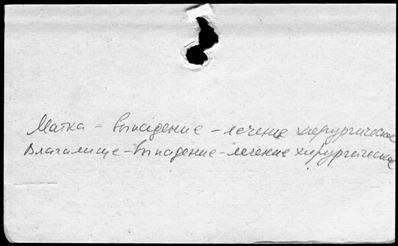 Матка - выпадение - лечение хирургическое
Влагалище - выпадение - лечение хирургическое